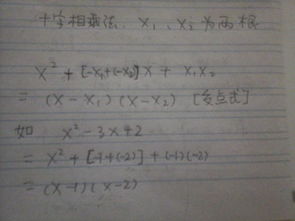 十字相乘法、x₁、x₂为两根
x² + [-x₁+(-x₂)]x + x₁x₂
= (x-x₁)(x-x₂) [交点式]
如 x²-3x+2
= x² + [-1+(-2)] + (-1)(-2)
= (x-1)(x-2)